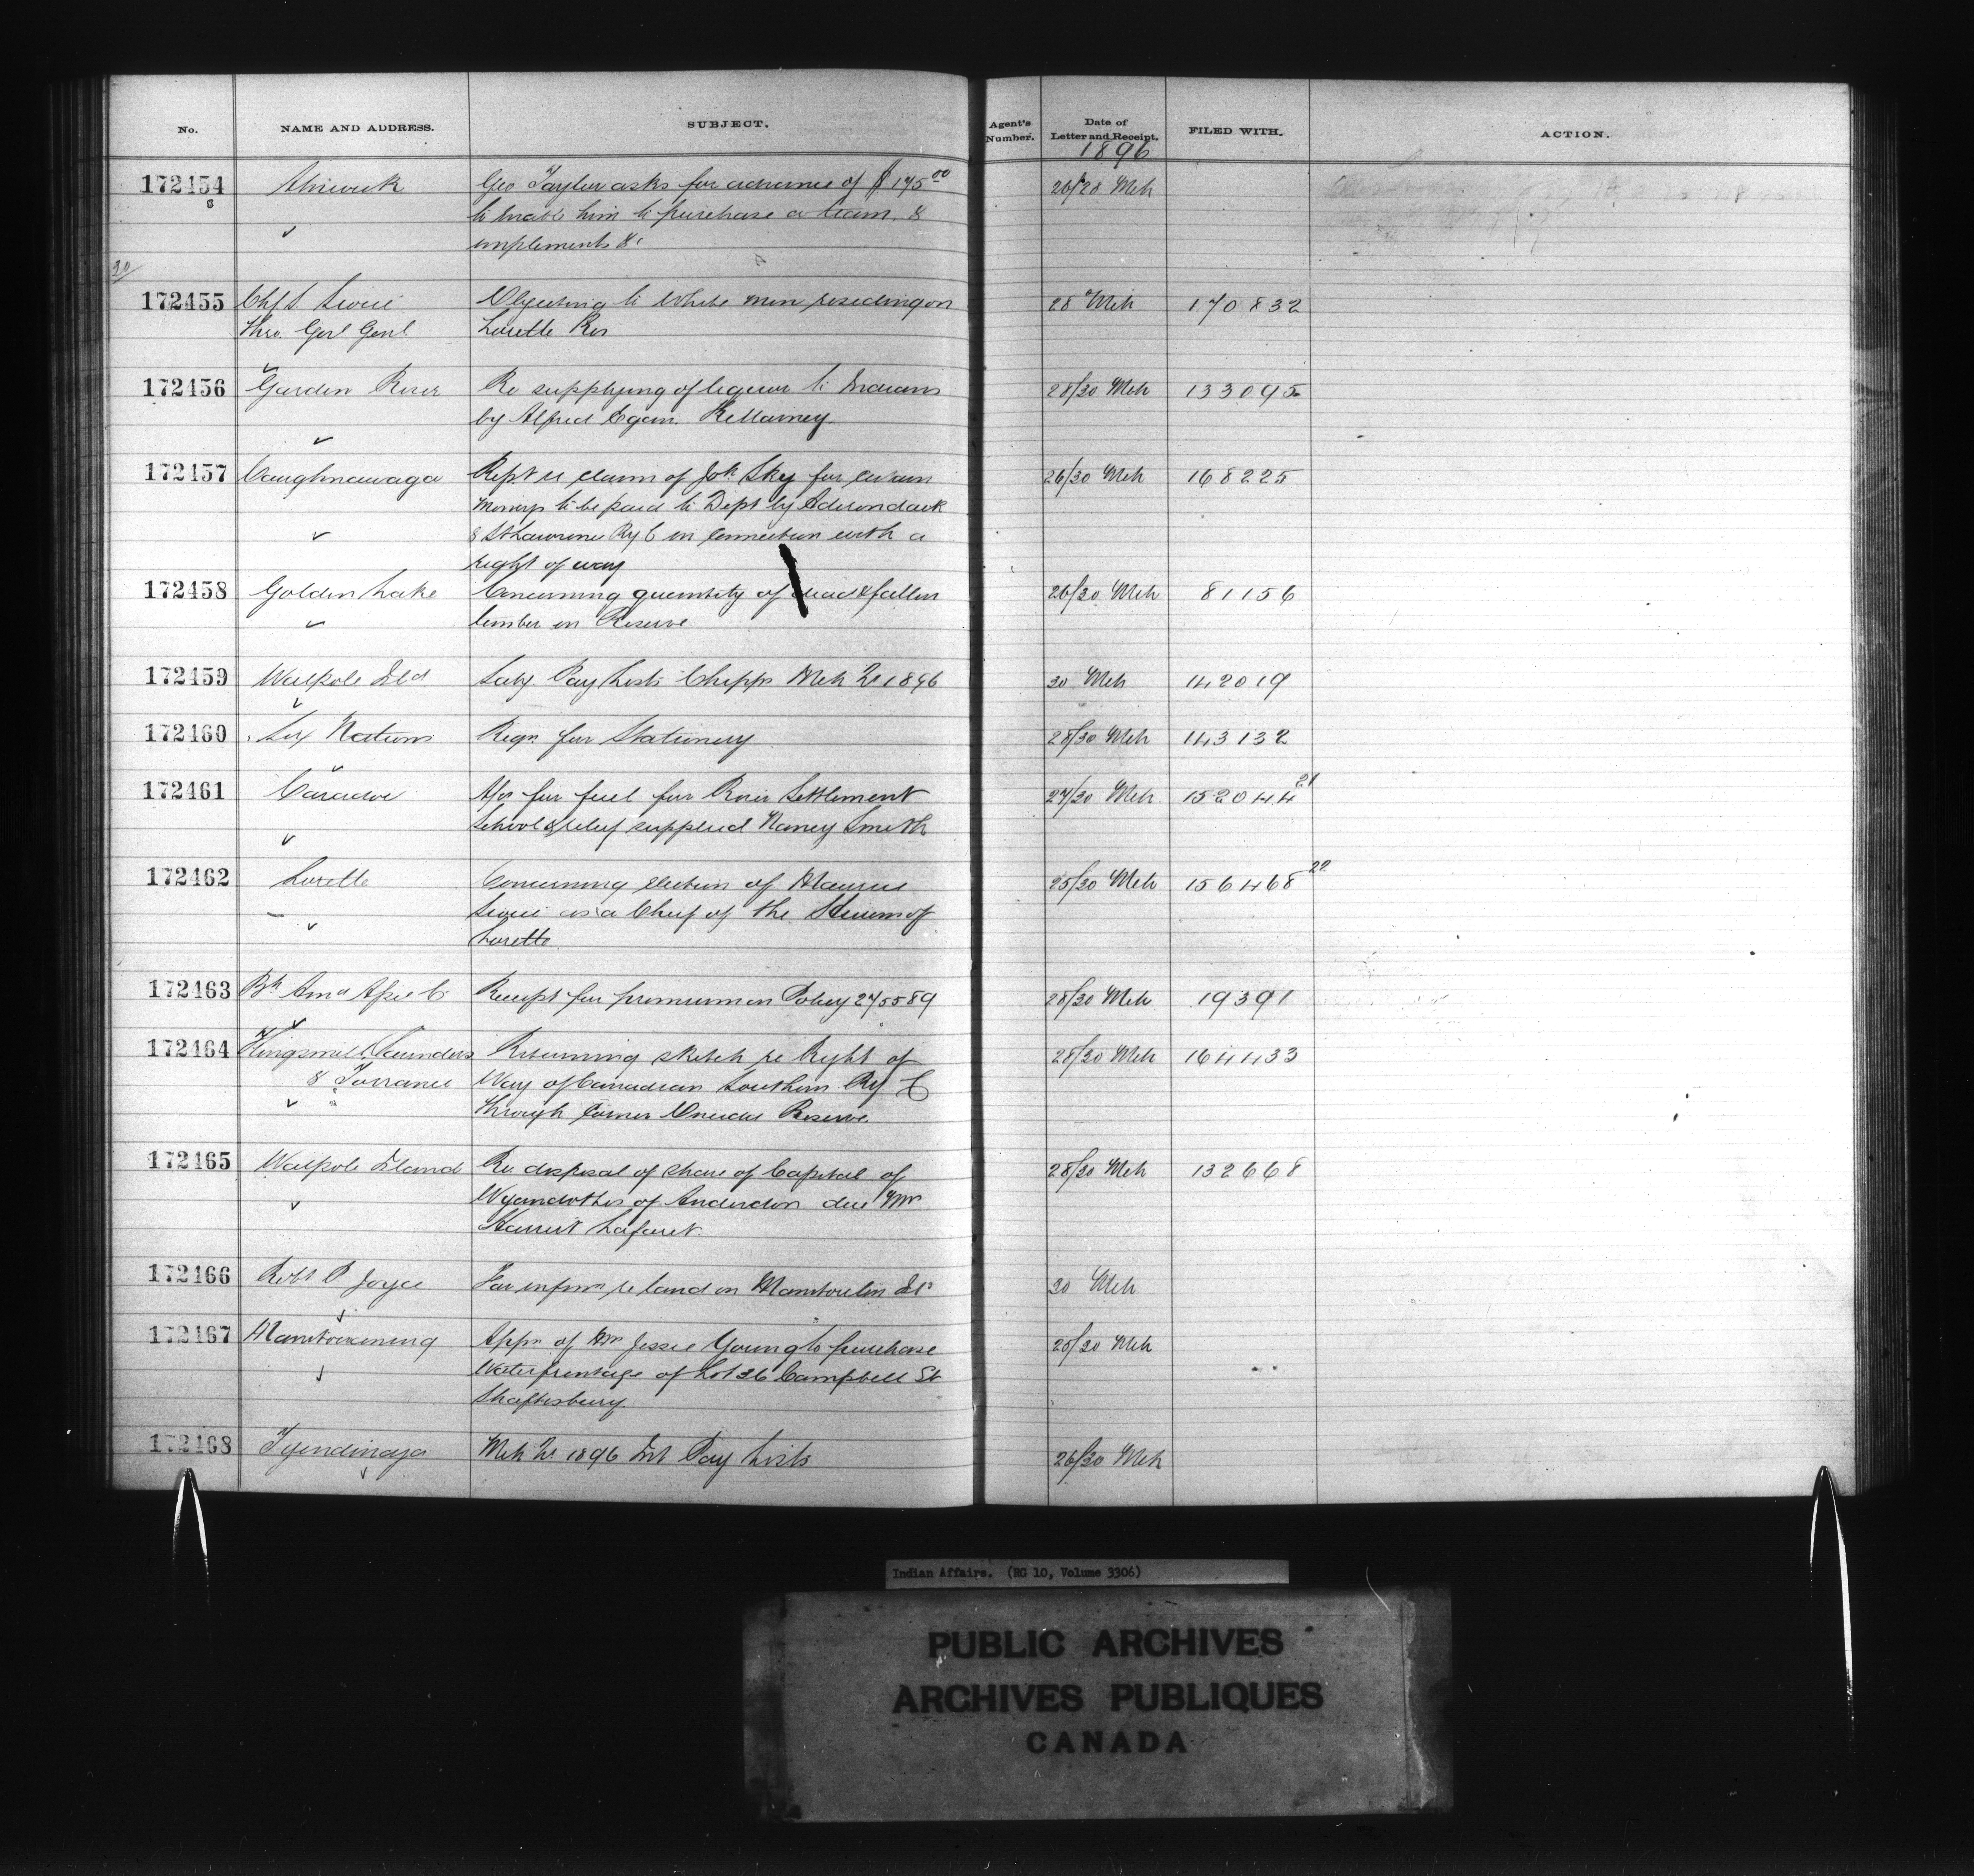 No. NAME AND ADDRESS. SUBJECT. Agent's Number. Date of Letter and Receipt. FILED WITH. ACTION.
1896
172454 Alnwick Geo Taylor asks for advance of $175.00 26/28 Mch
to enable him to purchase a team &
implements &c
30/
172455 Chf S. Sioui Objecting to White men residing on 28 Mch 170832
Thro. Govl Genl Lorette Res
172456 Garden River Re supplying of liquor to Indians 28/30 Mch 133095
by Alfred Egan. Killarney
172457 Caughnawaga Rept re claim of Jok Sky for certain 26/30 Mch 168225
moneys to be paid to Dept by Adirondack
& St Lawrence Ry C in connection with a
right of way
172458 Golden Lake Concerning quantity of dead & fallen 26/30 Mch 81156
timber on Reserve
172459 Walpole Isld Saly. Pay Lists Chipps Mch Qr 1896 30 Mch 142019
172460 Six Nations Reqn for Stationery 28/30 Mch 143132
172461 Caradoc A/cs for fuel for River Settlement 27/30 Mch 152044 21
School & relief supplied Nancy Smith
172462 Lorette Concerning election of Maurice 25/30 Mch 156468 22
Sioui as a Chief of the Hurons of
Lorette
172463 Bh Ama Asse C Receipt for premium on Policy 275589 28/30 Mch 19391
172464 Kingsmill, Saunders Returning sketch re Right of 28/30 Mch 164433
& Torrance Way of Canadian Southern Ry C
through corner Oneida Reserve
172465 Walpole Island Re disposal of share of Capital of 28/30 Mch 132668
Wyandottes of Anderdon due Mrs
Harriet Laforet.
172466 Robt P Joyce For infmn re land on Manitoulin Isd 30 Mch
172467 Manitowaning Appn of Mrs Jessie Young to purchase 25/30 Mch
Waterfrontage of Lot 36 Campbell St
Shaftesbury
172468 Tyendinaga Mch Qr 1896 Int Pay Lists 26/30 Mch
Indian Affairs. (RG 10, Volume 3306)
PUBLIC ARCHIVES
ARCHIVES PUBLIQUES
CANADA